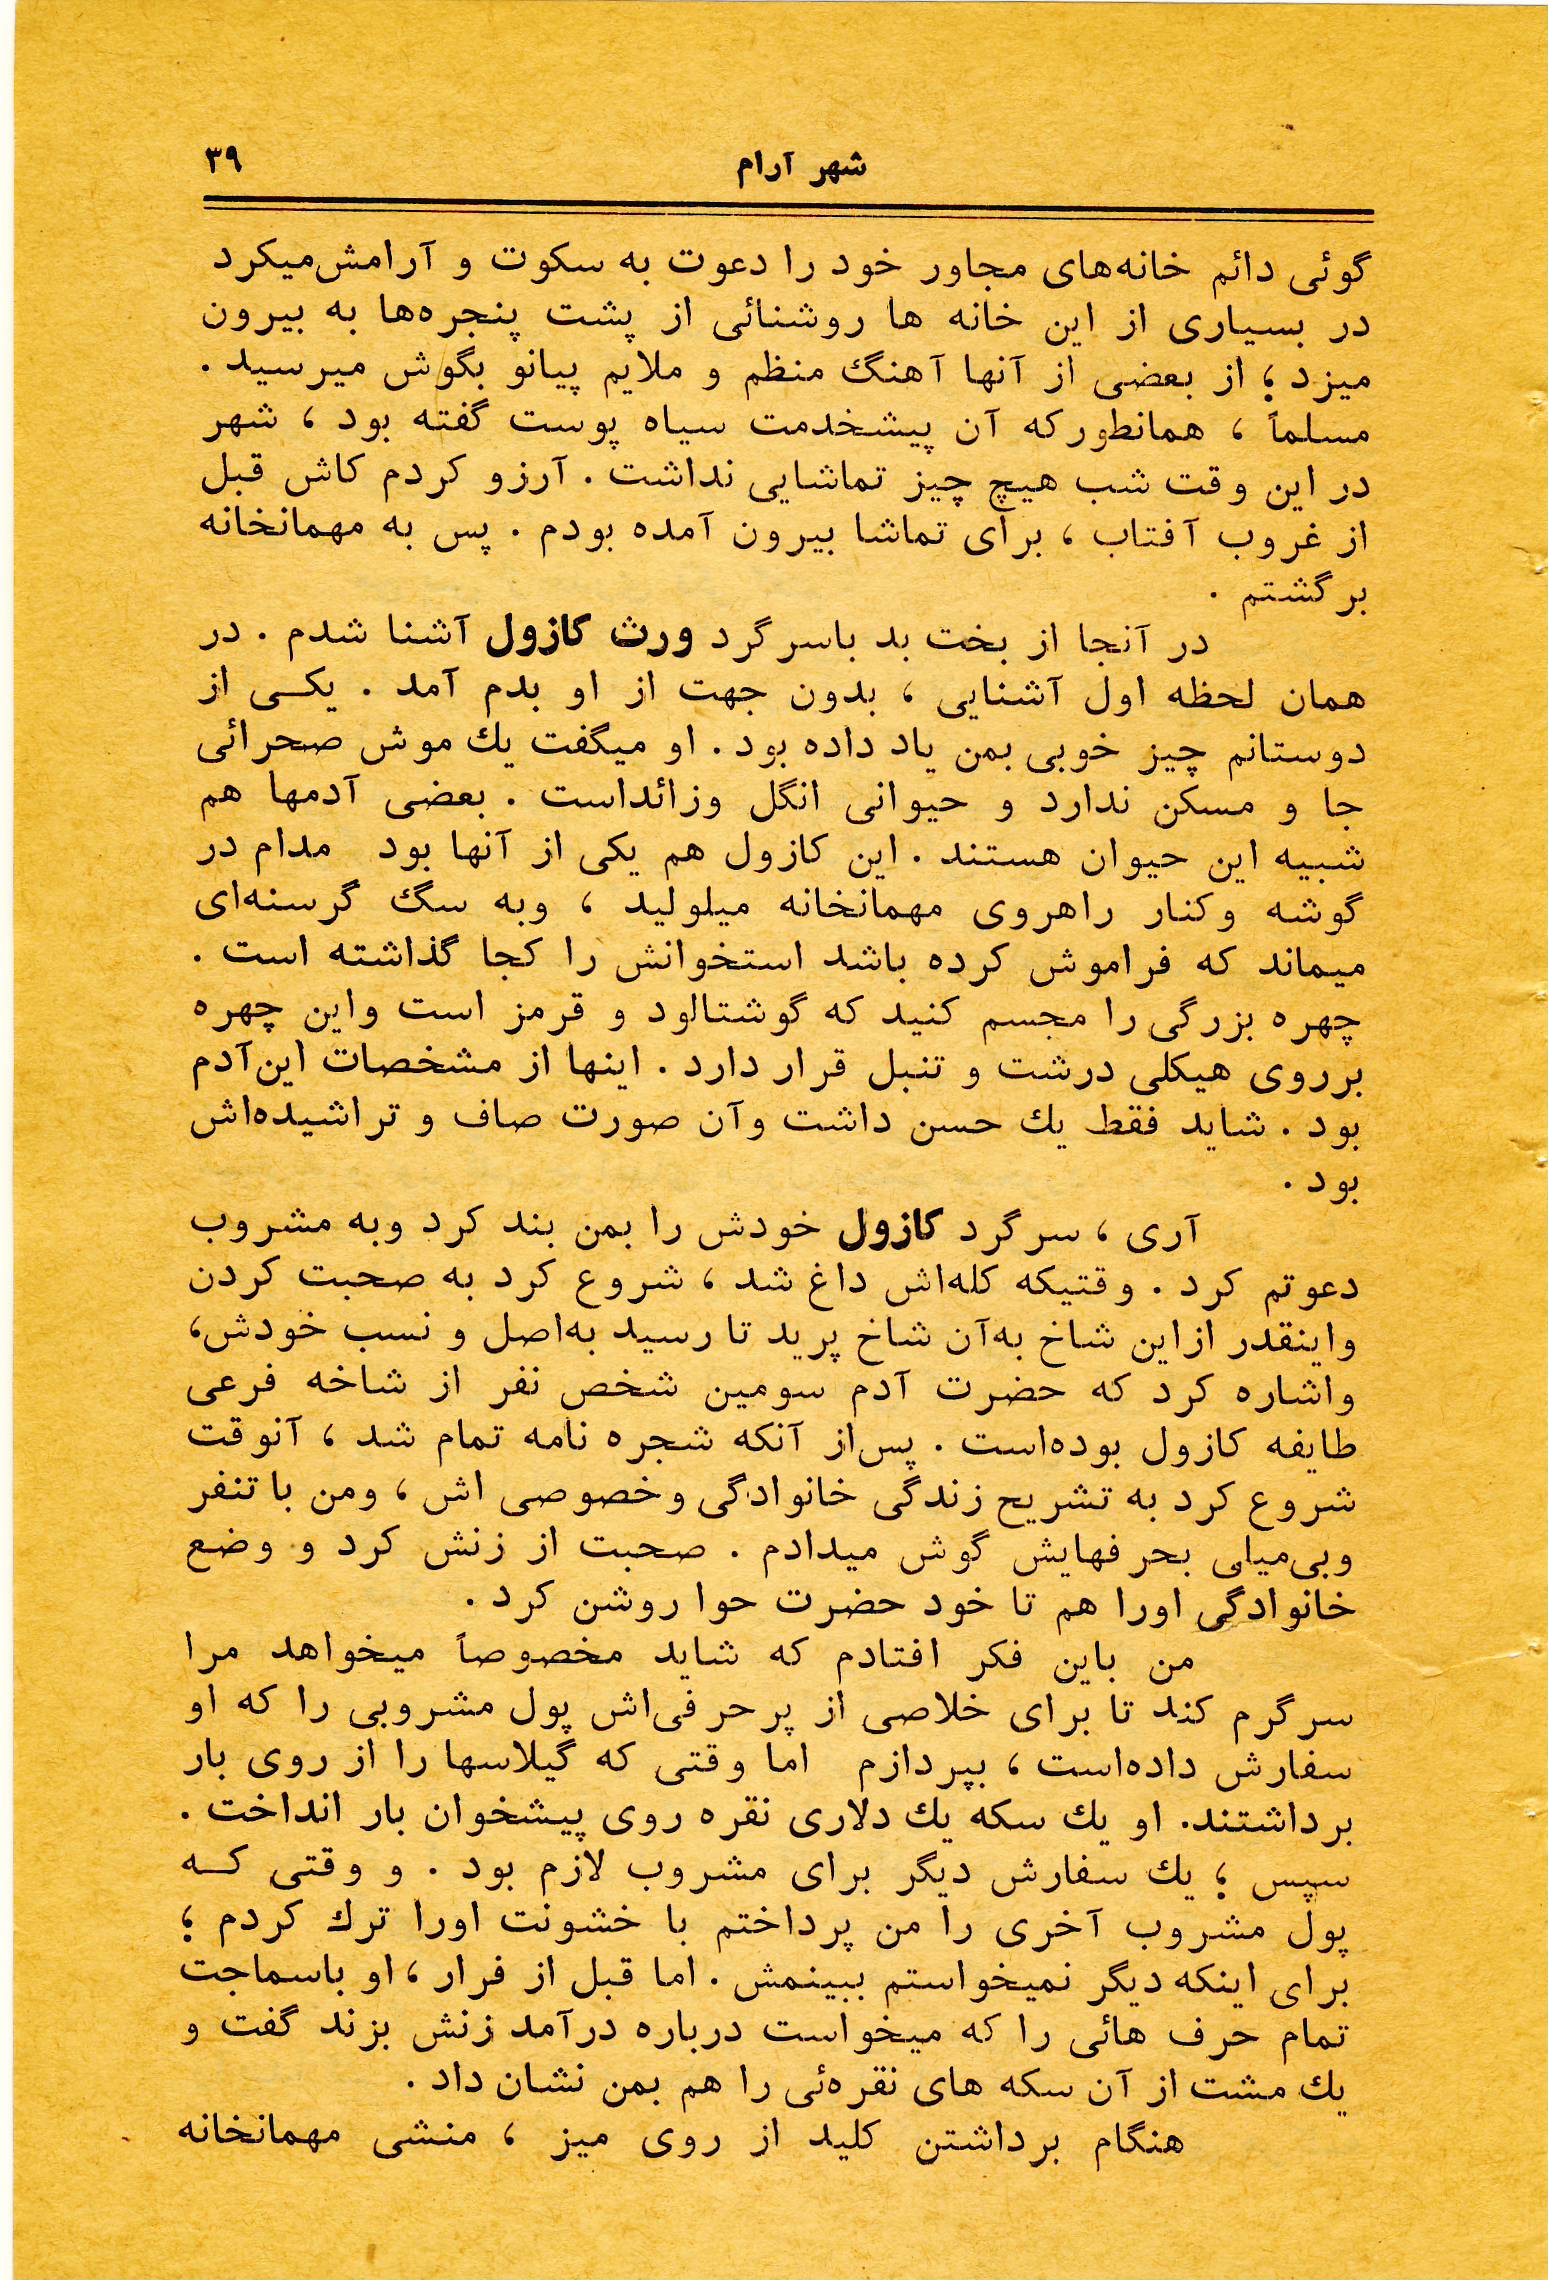 شهر آرام ۳۹
گوئی دائم خانه‌های مجاور خود را دعوت به سکوت و آرامش‌میکرد
در بسیاری از این خانه ها روشنائی از پشت پنجره‌ها به بیرون
میزد ؛ از بعضی از آنها آهنگ منظم و ملایم پیانو بگوش میرسید .
مسلماً ، همانطورکه آن پیشخدمت سیاه پوست گفته بود ، شهر
در این وقت شب هیچ چیز تماشایی نداشت . آرزو کردم کاش قبل
از غروب آفتاب ، برای تماشا بیرون آمده بودم . پس به مهمانخانه
برگشتم .
در آنجا از بخت بد باسرگرد ورث کازول آشنا شدم . در
همان لحظه اول آشنایی ، بدون جهت از او بدم آمد . یکی از
دوستانم چیز خوبی بمن یاد داده بود . او میگفت یك موش صحرائی
جا و مسکن ندارد و حیوانی انگل وزائداست . بعضی آدمها هم
شبیه این حیوان هستند . این کازول هم یکی از آنها بود مدام در
گوشه وکنار راهروی مهمانخانه میلولید ، وبه سگ گرسنه‌ای
میماند که فراموش کرده باشد استخوانش را کجا گذاشته است .
چهره بزرگی را مجسم کنید که گوشتالود و قرمز است واین چهره
برروی هیکلی درشت و تنبل قرار دارد . اینها از مشخصات این‌آدم
بود . شاید فقط یك حسن داشت وآن صورت صاف و تراشیده‌اش
بود .
آری ، سرگرد کازول خودش را بمن بند کرد وبه مشروب
دعوتم کرد . وقتیکه کله‌اش داغ شد ، شروع کرد به صحبت کردن
واینقدر ازاین شاخ به‌آن شاخ پرید تا رسید به‌اصل و نسب خودش،
واشاره کرد که حضرت آدم سومین شخص نفر از شاخه فرعی
طایفه کازول بوده‌است . پس‌از آنکه شجره نامه تمام شد ، آنوقت
شروع کرد به تشریح زندگی خانوادگی وخصوصی اش ، ومن با تنفر
وبی‌میلی بحرفهایش گوش میدادم . صحبت از زنش کرد و وضع
خانوادگی اورا هم تا خود حضرت حوا روشن کرد .
من باین فکر افتادم که شاید مخصوصاً میخواهد مرا
سرگرم کند تا برای خلاصی از پرحرفی‌اش پول مشروبی را که او
سفارش داده‌است ، بپردازم اما وقتی که گیلاسها را از روی بار
برداشتند. او یك سکه یك دلاری نقره روی پیشخوان بار انداخت .
سپس ؛ یك سفارش دیگر برای مشروب لازم بود . و وقتی که
پول مشروب آخری را من پرداختم با خشونت اورا ترك کردم ؛
برای اینکه دیگر نمیخواستم ببینمش . اما قبل از فرار ، او باسماجت
تمام حرف هائی را که میخواست درباره درآمد زنش بزند گفت و
یك مشت از آن سکه های نقره‌ئی را هم بمن نشان داد .
هنگام برداشتن کلید از روی میز ، منشی مهمانخانه